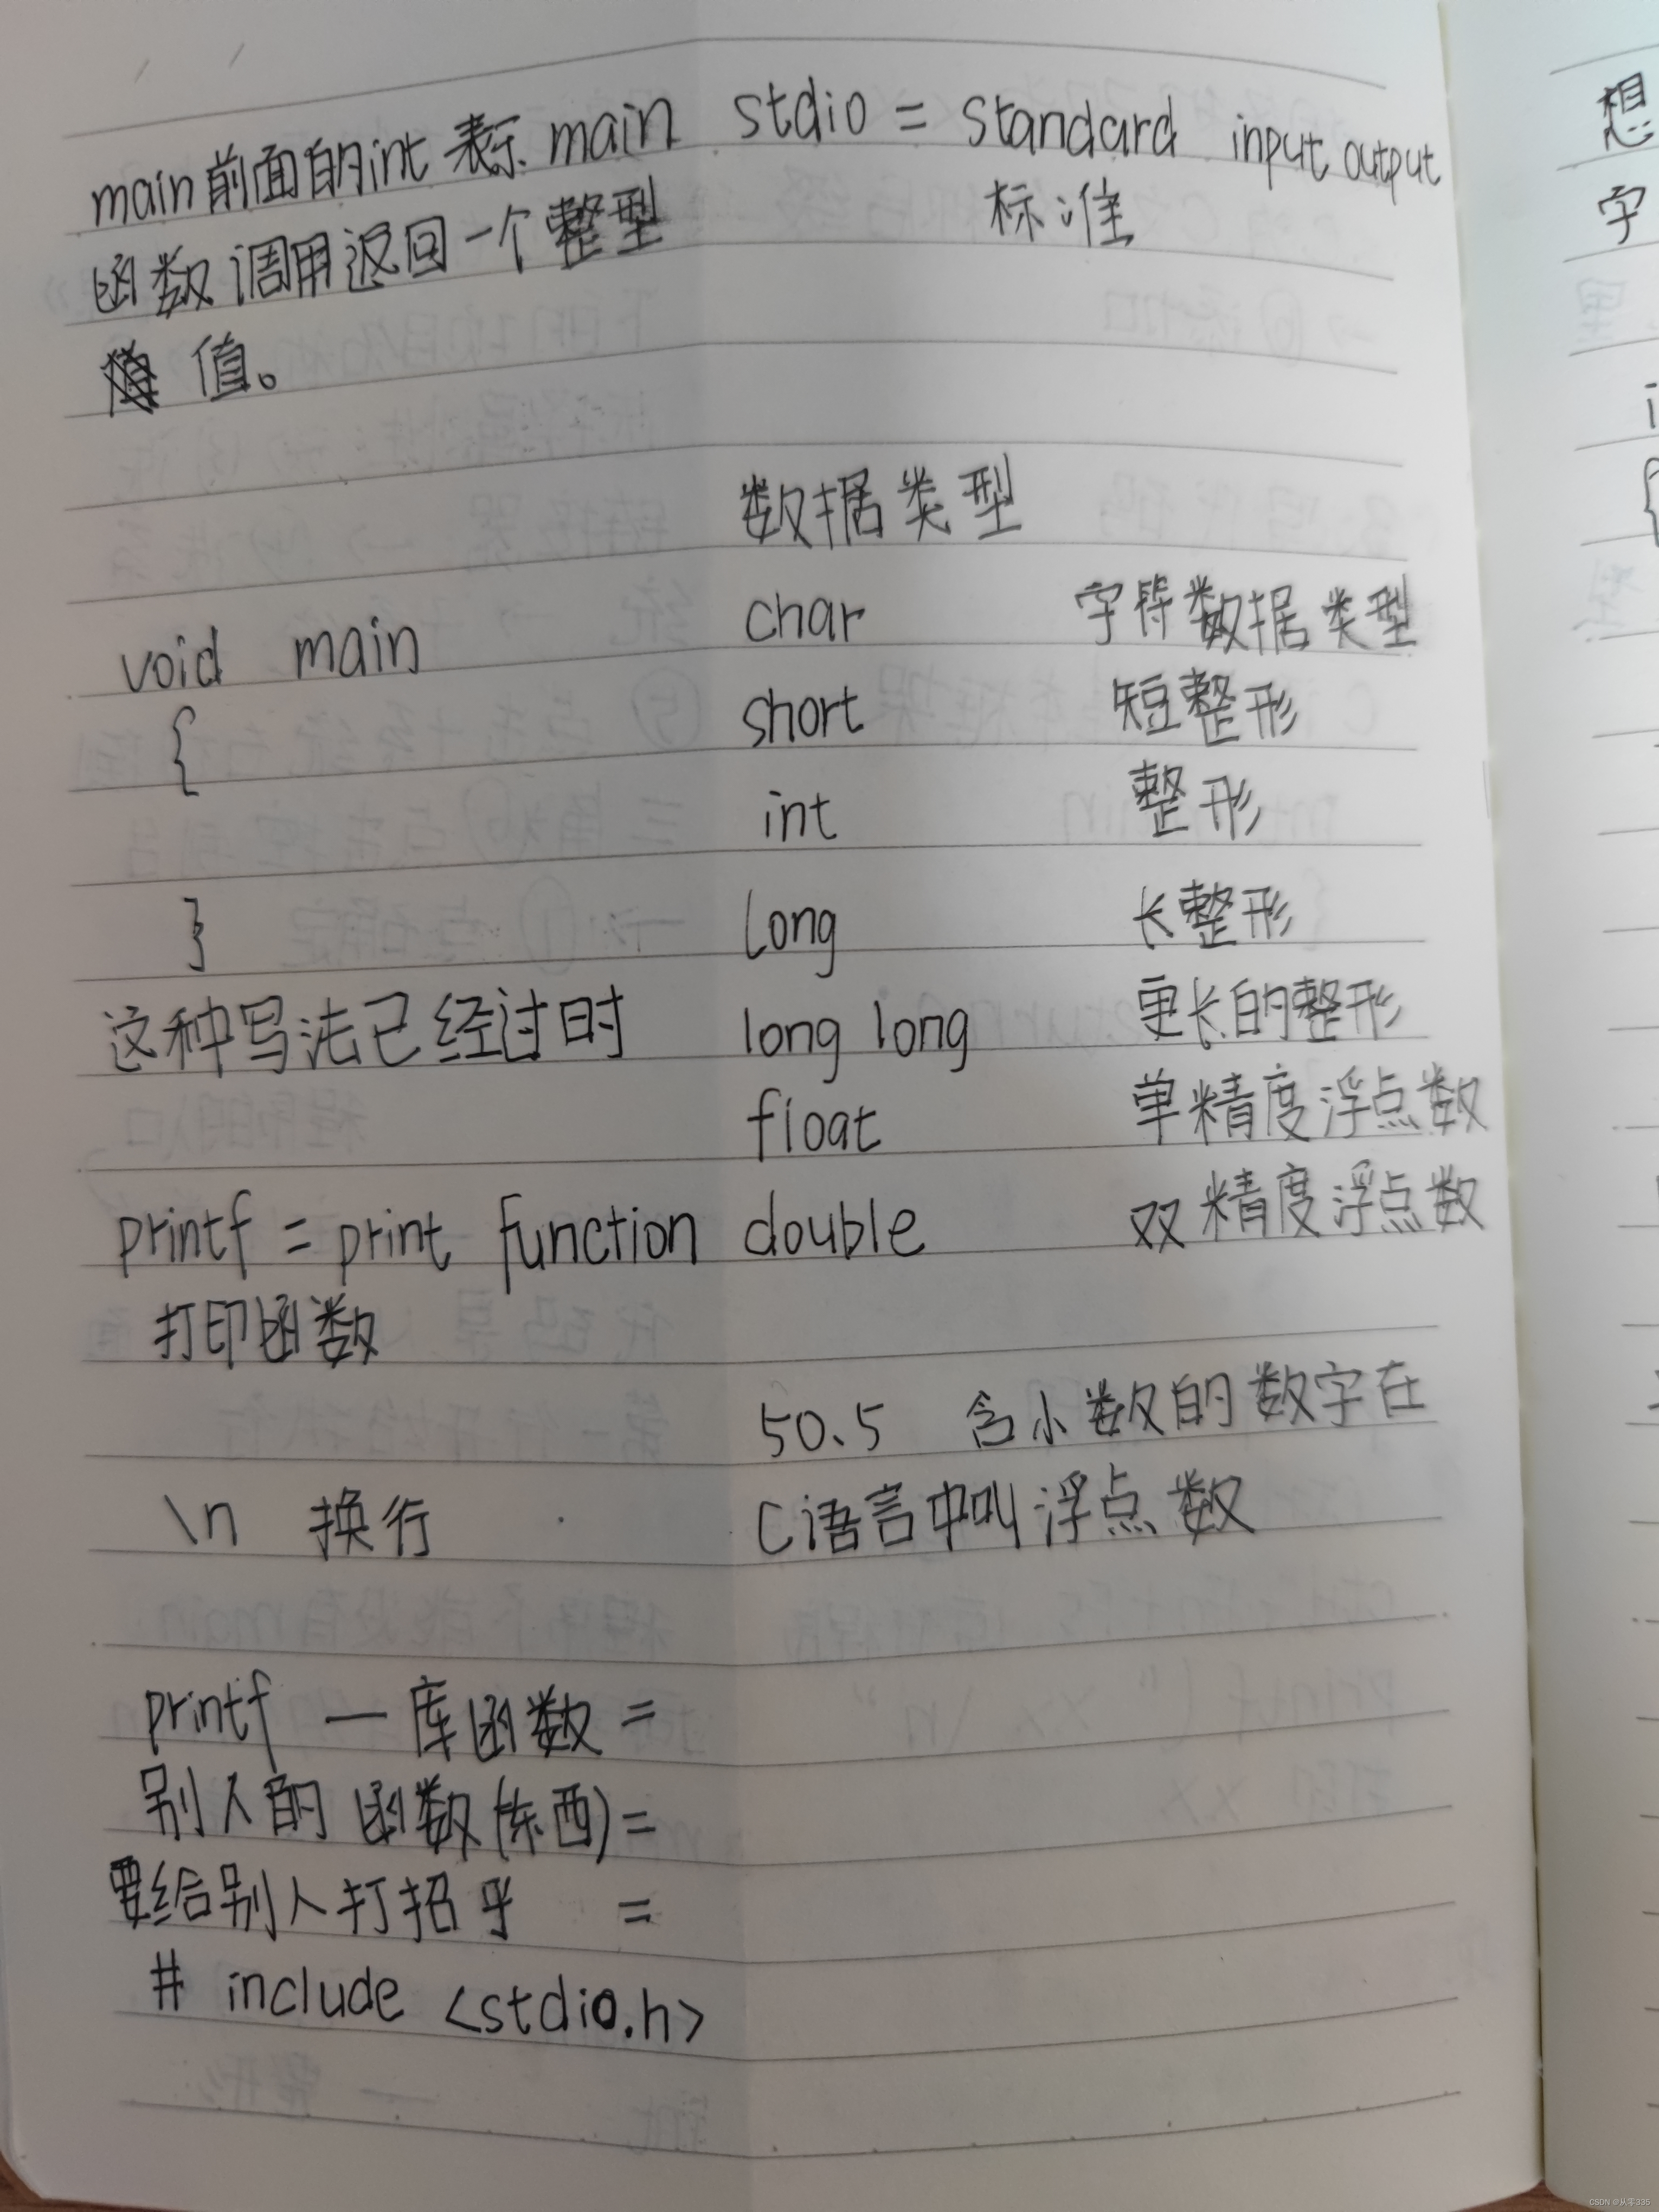 main前面的int表示main
函数调用返回一个整型
值。
void main
{
}
这种写法已经过时
printf = print function
打印函数
\n 换行
printf — 库函数 =
别人的函数(东西) =
要给别人打招乎 =
# include <stdio.h>
stdio = standard input output
标准
数据类型
char 字符数据类型
short 短整形
int 整形
long 长整形
long long 更长的整形
float 单精度浮点数
double 双精度浮点数
50.5 含小数的数字在
C语言中叫浮点数
想
字
i
{
CSDN @从零335